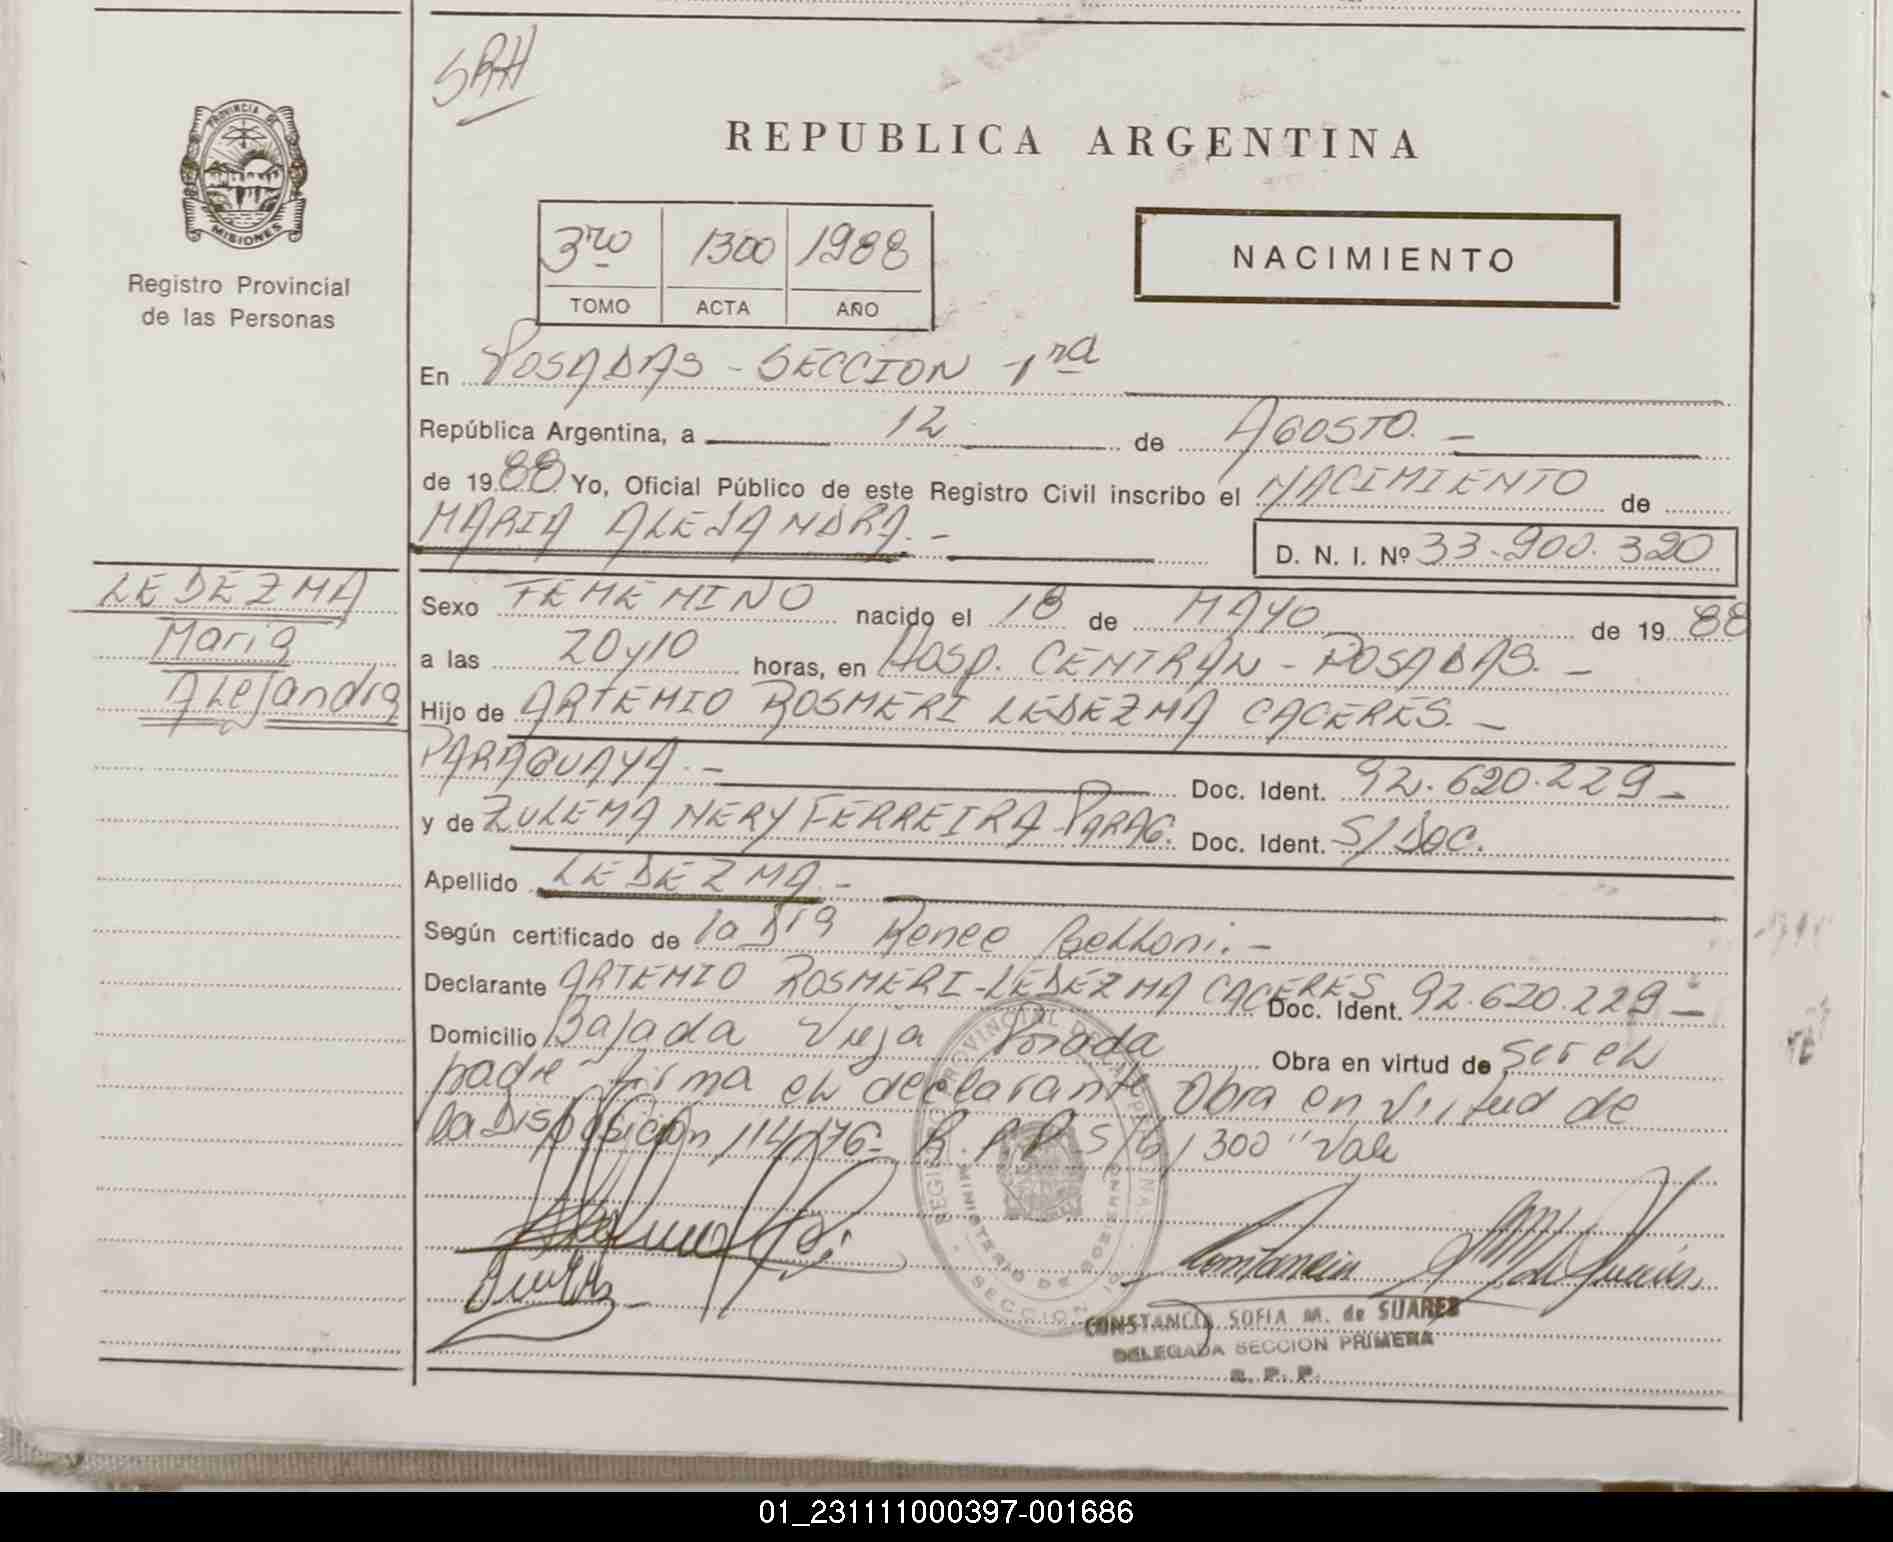 SRH
PROVINCIA DE
MISIONES
Registro Provincial
de las Personas
REPUBLICA ARGENTINA
3ro 1300 1988
TOMO ACTA AÑO
NACIMIENTO
En POSADAS - SECCION 1ra
República Argentina, a 12 de AGOSTO. -
de 1988 Yo, Oficial Público de este Registro Civil inscribo el NACIMIENTO de
MARIA ALEJANDRA. -
D. N. I. Nº 33.900.320
LEDEZMA
Maria
Alejandra
Sexo FEMENINO nacido el 18 de MAYO de 1988
a las 20 y 10 horas, en Hosp. CENTRAL - POSADAS. -
Hijo de ARTEMIO ROSMERI LEDEZMA CACERES. -
PARAGUAYA. - Doc. Ident. 92.620.229 -
y de ZULEMA NERY FERREIRA - PARAG. Doc. Ident. S/DOC.
Apellido LEDEZMA. -
Según certificado de la Dra Renee Belloni. -
Declarante ARTEMIO ROSMERI - LEDEZMA CACERES Doc. Ident. 92.620.229 -
Domicilio Bajada Vieja Posada Obra en virtud de ser el
padre - firma el declarante Obra en virtud de
la Disposicion 114/76 - R.P.P. S/b, 1300 "Vale
REGISTRO PROVINCIAL DE LAS PERSONAS
MINISTERIO DE GOBIERNO
SECCION 1º
CONSTANCIA SOFIA M. de SUARES
DELEGADA SECCION PRIMERA
R. P. P.
01_231111000397-001686